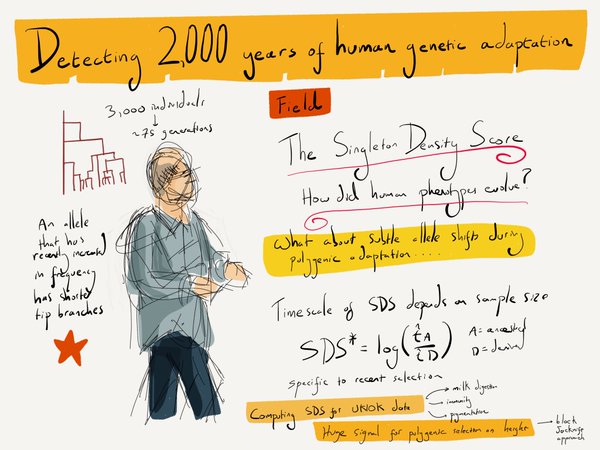 Detecting 2,000 years of human genetic adaptation
3,000 individuals
↓
~75 generations
Field
The Singleton Density Score
How did human phenotypes evolve?
An allele
that has
recently increased
in frequency
has shorter
tip branches
What about subtle allele shifts during
polygenic adaptation......
Timescale of SDS depends on sample size
SDS* = log(t̂A/t̂D)
A = ancestral
D = derived
specific to recent selection
Computing SDS for UK10K data
→ milk digestion
→ immunity
→ pigmentation
Huge signal for polygenic selection on height
→ block
Jacknife
approach